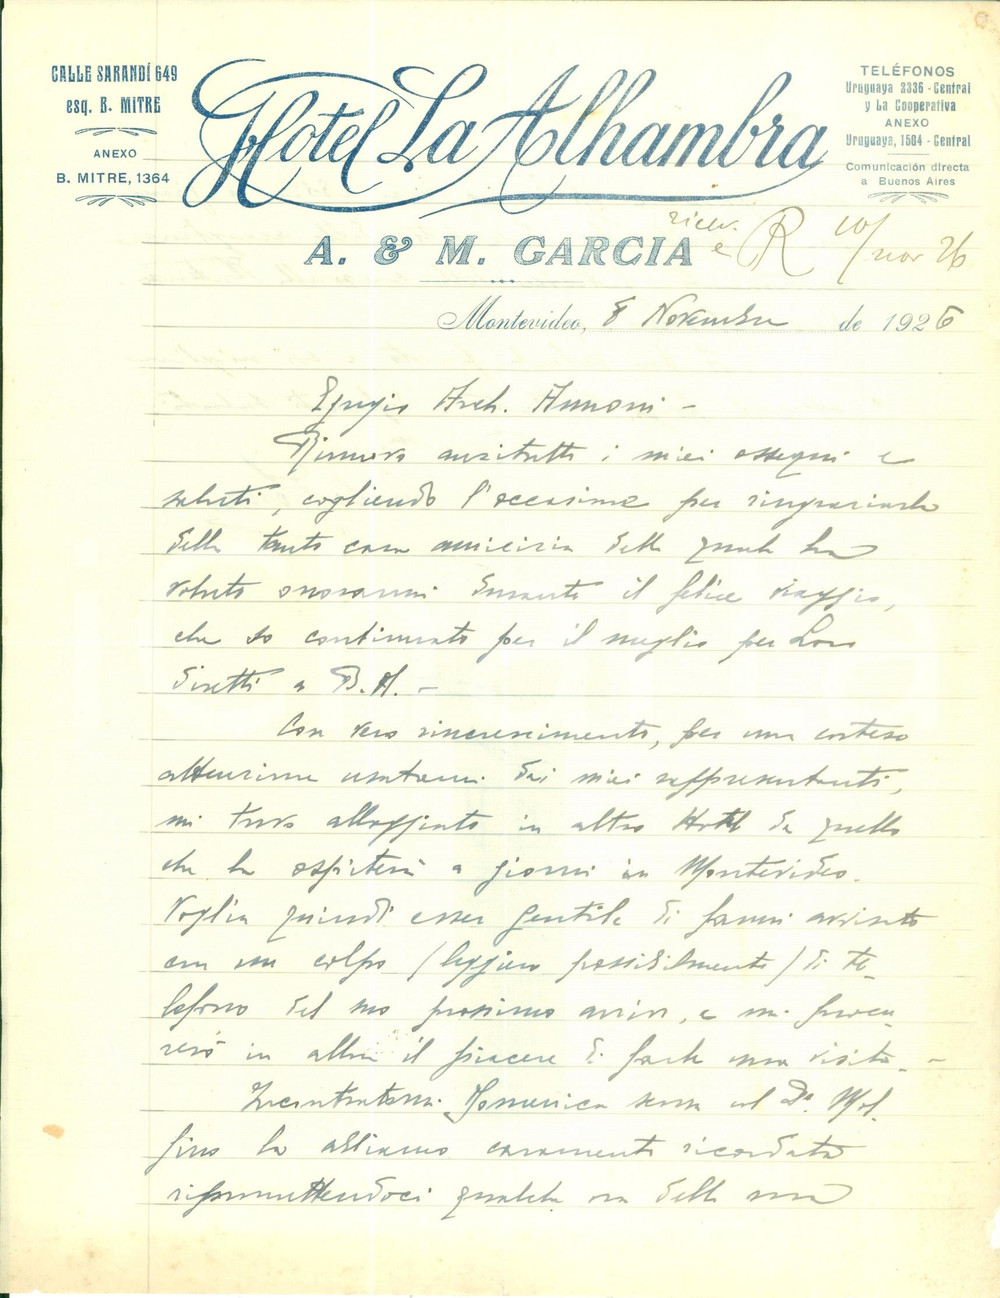 CALLE SARANDÍ 649
esq. B. MITRE
ANEXO
B. MITRE, 1364
Hotel La Alhambra
A. & M. GARCIA
TELÉFONOS
Uruguaya 2336 - Central
y La Cooperativa
ANEXO
Uruguaya, 1504 - Central
Comunicación directa
a Buenos Aires
ricev. e R 10/nov 26
Montevideo, 8 Novembre de 1926
Egregio Arch. Annoni -
Rinnovo anzitutto i miei ossequi e
saluti, cogliendo l'occasione per ringraziarla
della tanto cara amicizia della quale ha
voluto onorarmi durante il felice viaggio,
che so continuato per il meglio per Loro
diretti a B.A. -
Con vero rincrescimento, per una cortese
attenzione usatami dai miei rappresentanti,
mi trovo alloggiato in altro Hotel da quello
che la ospiterà a giorni in Montevideo.
Voglia quindi esser gentile di farmi avvisato
con un colpo (leggero possibilmente) di te-
lefono del suo prossimo arrivo, e mi procu-
rerò in allora il piacere di farle una visita. -
Incontratomi Domenica scorsa col Dr. Mol-
fino la abbiamo caramente ricordata
ripromettendoci qualche ora della sua